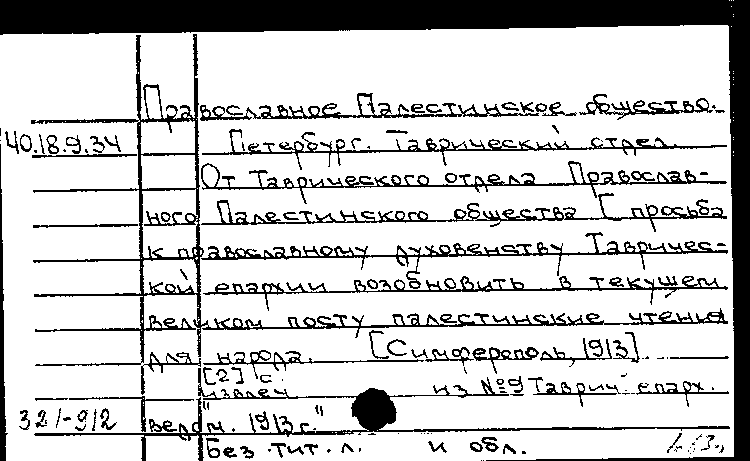 Православное Палестинское общество.
40.18.9.34 Петербург. Таврический отдел.
От Таврического отдела Православ-
ного Палестинского общества [просьба
к православному духовенству Тавричес-
кой епархии возобновить в текущем
великом посту палестинские чтения
для народа. [Симферополь, 1913].
[2] с.
извлеч. из №9 "Таврич. епарх.
321-912 ведом. 1913 г."
Без тит. л. и обл.